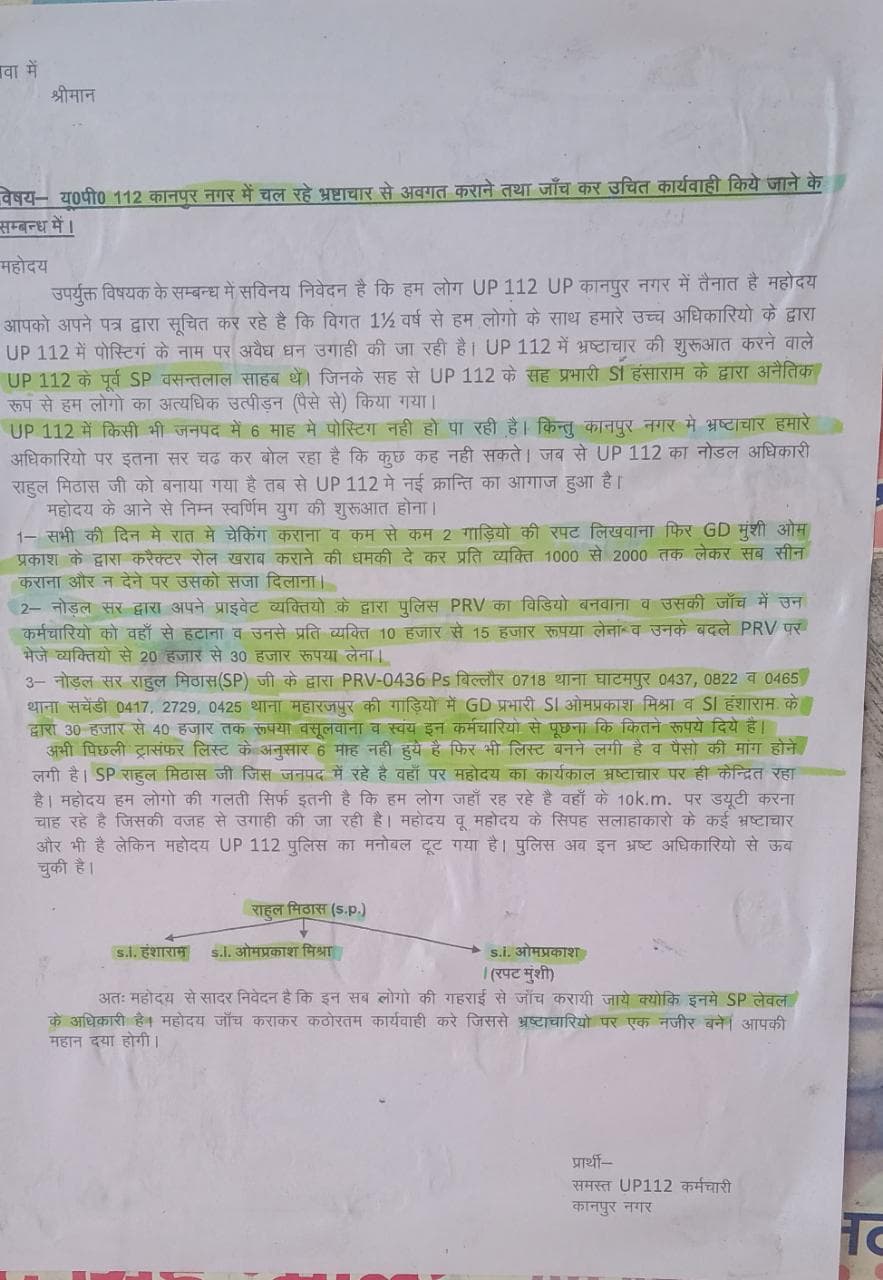 वा में
श्रीमान
विषय– यू0पी0 112 कानपुर नगर में चल रहे भ्रष्टाचार से अवगत कराने तथा जाँच कर उचित कार्यवाही किये जाने के
सम्बन्ध में।
महोदय
उपर्युक्त विषयक के सम्बन्ध में सविनय निवेदन है कि हम लोग UP 112 UP कानपुर नगर में तैनात है महोदय
आपको अपने पत्र द्वारा सूचित कर रहे है कि विगत 1½ वर्ष से हम लोगो के साथ हमारे उच्च अधिकारियो के द्वारा
UP 112 में पोस्टिगं के नाम पर अवैघ धन उगाही की जा रही है। UP 112 में भ्रष्टाचार की शुरूआत करने वाले
UP 112 के पूर्व SP वसन्तलाल साहब थे। जिनके सह से UP 112 के सह प्रभारी SI हंसाराम के द्वारा अनैतिक
रूप से हम लोगो का अत्यधिक उत्पीड़न (पैसे से) किया गया।
UP 112 में किसी भी जनपद में 6 माह मे पोस्टिग नही हो पा रही है। किन्तु कानपुर नगर मे भ्रष्टाचार हमारे
अधिकारियो पर इतना सर चढ कर बोल रहा है कि कुछ कह नही सकते। जब से UP 112 का नोडल अधिकारी
राहुल मिठास जी को बनाया गया है तब से UP 112 मे नई क्रान्ति का आगाज हुआ है।
महोदय के आने से निम्न स्वर्णिम युग की शुरूआत होना।
1– सभी की दिन मे रात मे चेकिंग कराना व कम से कम 2 गाड़ियो की रपट लिखवाना फिर GD मुंशी ओम
प्रकाश के द्वारा करैक्टर रोल खराब कराने की धमकी दे कर प्रति व्यक्ति 1000 से 2000 तक लेकर सब सीन
कराना और न देने पर उसको सजा दिलाना।
2– नोड़ल सर द्वारा अपने प्राइवेट व्यक्तियो के द्वारा पुलिस PRV का विडियो बनवाना व उसकी जाँच में उन
कर्मचारियो को वहाँ से हटाना व उनसे प्रति व्यक्ति 10 हजार से 15 हजार रूपया लेना व उनके बदले PRV पर
भेजे व्यक्तियो से 20 हजार से 30 हजार रूपया लेना।
3– नोडल सर राहुल मिठास(SP) जी के द्वारा PRV-0436 Ps बिल्लौर 0718 थाना घाटमपुर 0437, 0822 व 0465
थाना सचेंडी 0417, 2729, 0425 थाना महारजपुर की गाड़ियो में GD प्रभारी SI ओमप्रकाश मिश्रा व SI हंशाराम के
द्वारा 30 हजार से 40 हजार तक रूपया वसूलवाना व स्वंय इन कर्मचारियो से पूछना कि कितने रूपये दिये है।
अभी पिछली ट्रासंफर लिस्ट के अनुसार 6 माह नही हुये है फिर भी लिस्ट बनने लगी है व पैसो की मांग होने
लगी है। SP राहुल मिठास जी जिस जनपद में रहे है वहाँ पर महोदय का कार्यकाल भ्रष्टाचार पर ही केन्द्रित रहा
है। महोदय हम लोगो की गलती सिर्फ इतनी है कि हम लोग जहाँ रह रहे है वहाँ के 10k.m. पर डयूटी करना
चाह रहे है जिसकी वजह से उगाही की जा रही है। महोदय वू महोदय के सिपह सलाहाकारो के कई भ्रष्टाचार
और भी है लेकिन महोदय UP 112 पुलिस का मनोबल टूट गया है। पुलिस अब इन भ्रष्ट अधिकारियो से ऊब
चुकी है।
राहुल मिठास (s.p.)
s.i. हंशाराम s.i. ओमप्रकाश मिश्रा s.i. ओमप्रकाश
(रपट मुंशी)
अतः महोदय से सादर निवेदन है कि इन सब लोगो की गहराई से जाँच करायी जाये क्योकि इनमे SP लेवल
के अधिकारी है। महोदय जाँच कराकर कठोरतम कार्यवाही करे जिससे भ्रष्टाचारियो पर एक नजीर बने। आपकी
महान दया होगी।
प्रार्थी–
समस्त UP112 कर्मचारी
कानपुर नगर